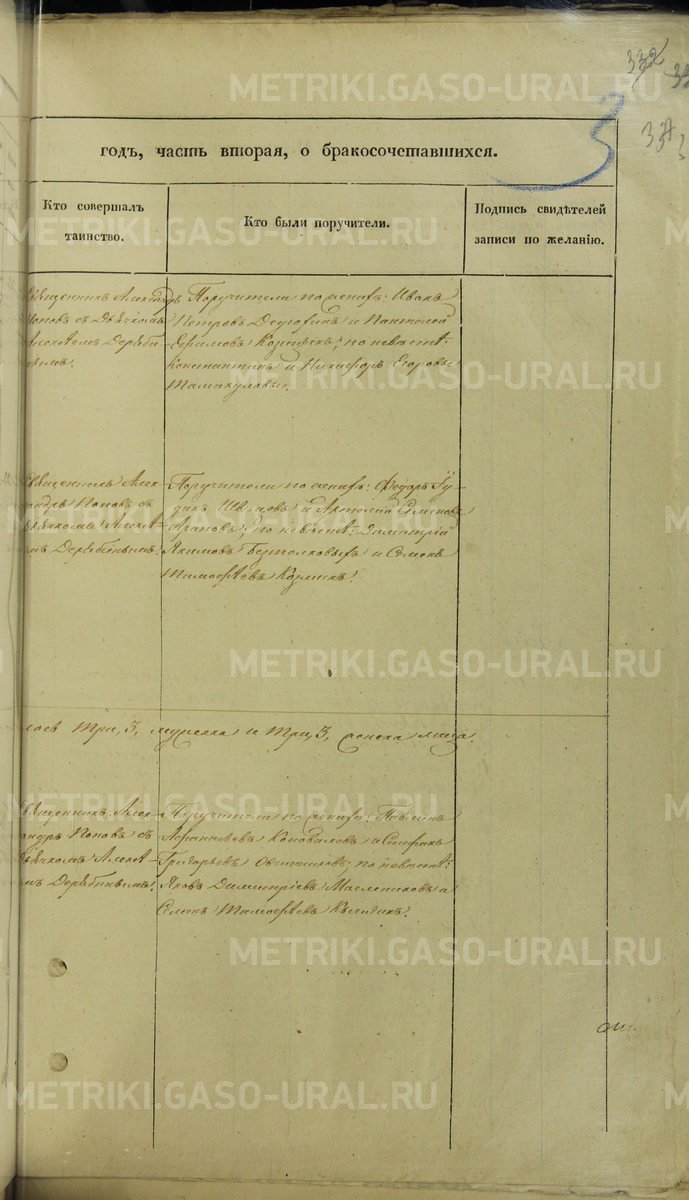 332
годъ, часть вторая, о бракосочетавшихся.
Кто совершалъ
таинство.
Кто были поручители.
Подпись свидѣтелей
записи по желанію.
Священникъ Александръ
Поповъ съ Дьячкомъ
Алексѣемъ Дерябинымъ.
Поручители по женихѣ: Иванъ
Петровъ и Пантелей
Ефимовъ по невѣстѣ:
Константинъ и Никифоръ Егоровы
Тамакуловы.
Священникъ Алек-
сандръ Поповъ съ
Дьячкомъ Алексѣ-
емъ Дерябинымъ.
Поручители по женихѣ: Федоръ
Ивановъ и Артемій Семеновъ
Араповъ; по невѣстѣ: Димитрій
Якимовъ и Семенъ
Тимофѣевъ
три, 3, мужеска и три, 3, женска лица.
Священникъ Алек-
сандръ Поповъ съ
Дьячкомъ Алексѣ-
емъ Дерябинымъ.
Поручители по женихѣ: Павлинъ
Афанасьевъ Коноваловъ и
Григорьевъ Овчинниковъ; по невѣстѣ:
Яковъ Димитріевъ Маслениковъ и
Семенъ Тимофѣевъ
METRIKI.GASO-URAL.RU
METRIKI.GASO-URAL.RU
METRIKI.GASO-URAL.RU
METRIKI.GASO-URAL.RU
METRIKI.GASO-URAL.RU
METRIKI.GASO-URAL.RU
METRIKI.GASO-URAL.RU
METRIKI.GASO-URAL.RU